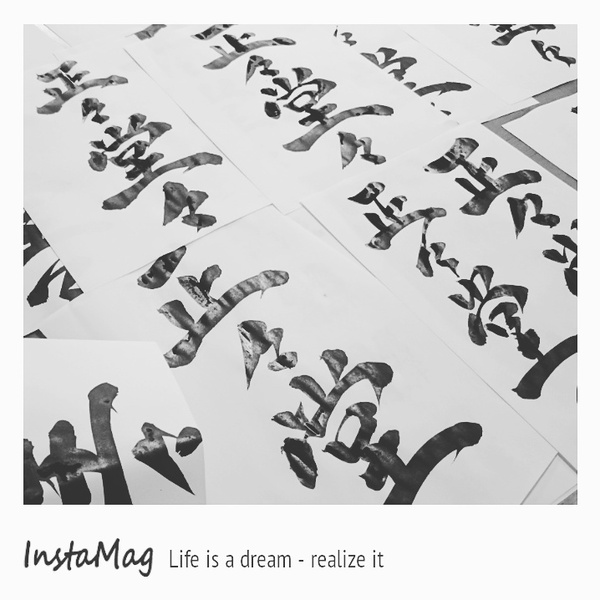 正々堂々
正々堂々
正々堂
正々
正々堂
InstaMag Life is a dream - realize it